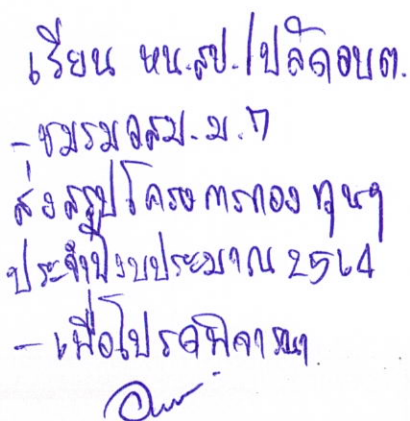 เรียน หน.สป./ปลัดอบต.
- ชมรมอสม. ม.7
ส่งสรุปโครงการกองทุนฯ
ประจำปีงบประมาณ 2564
- เพื่อโปรดพิจารณา